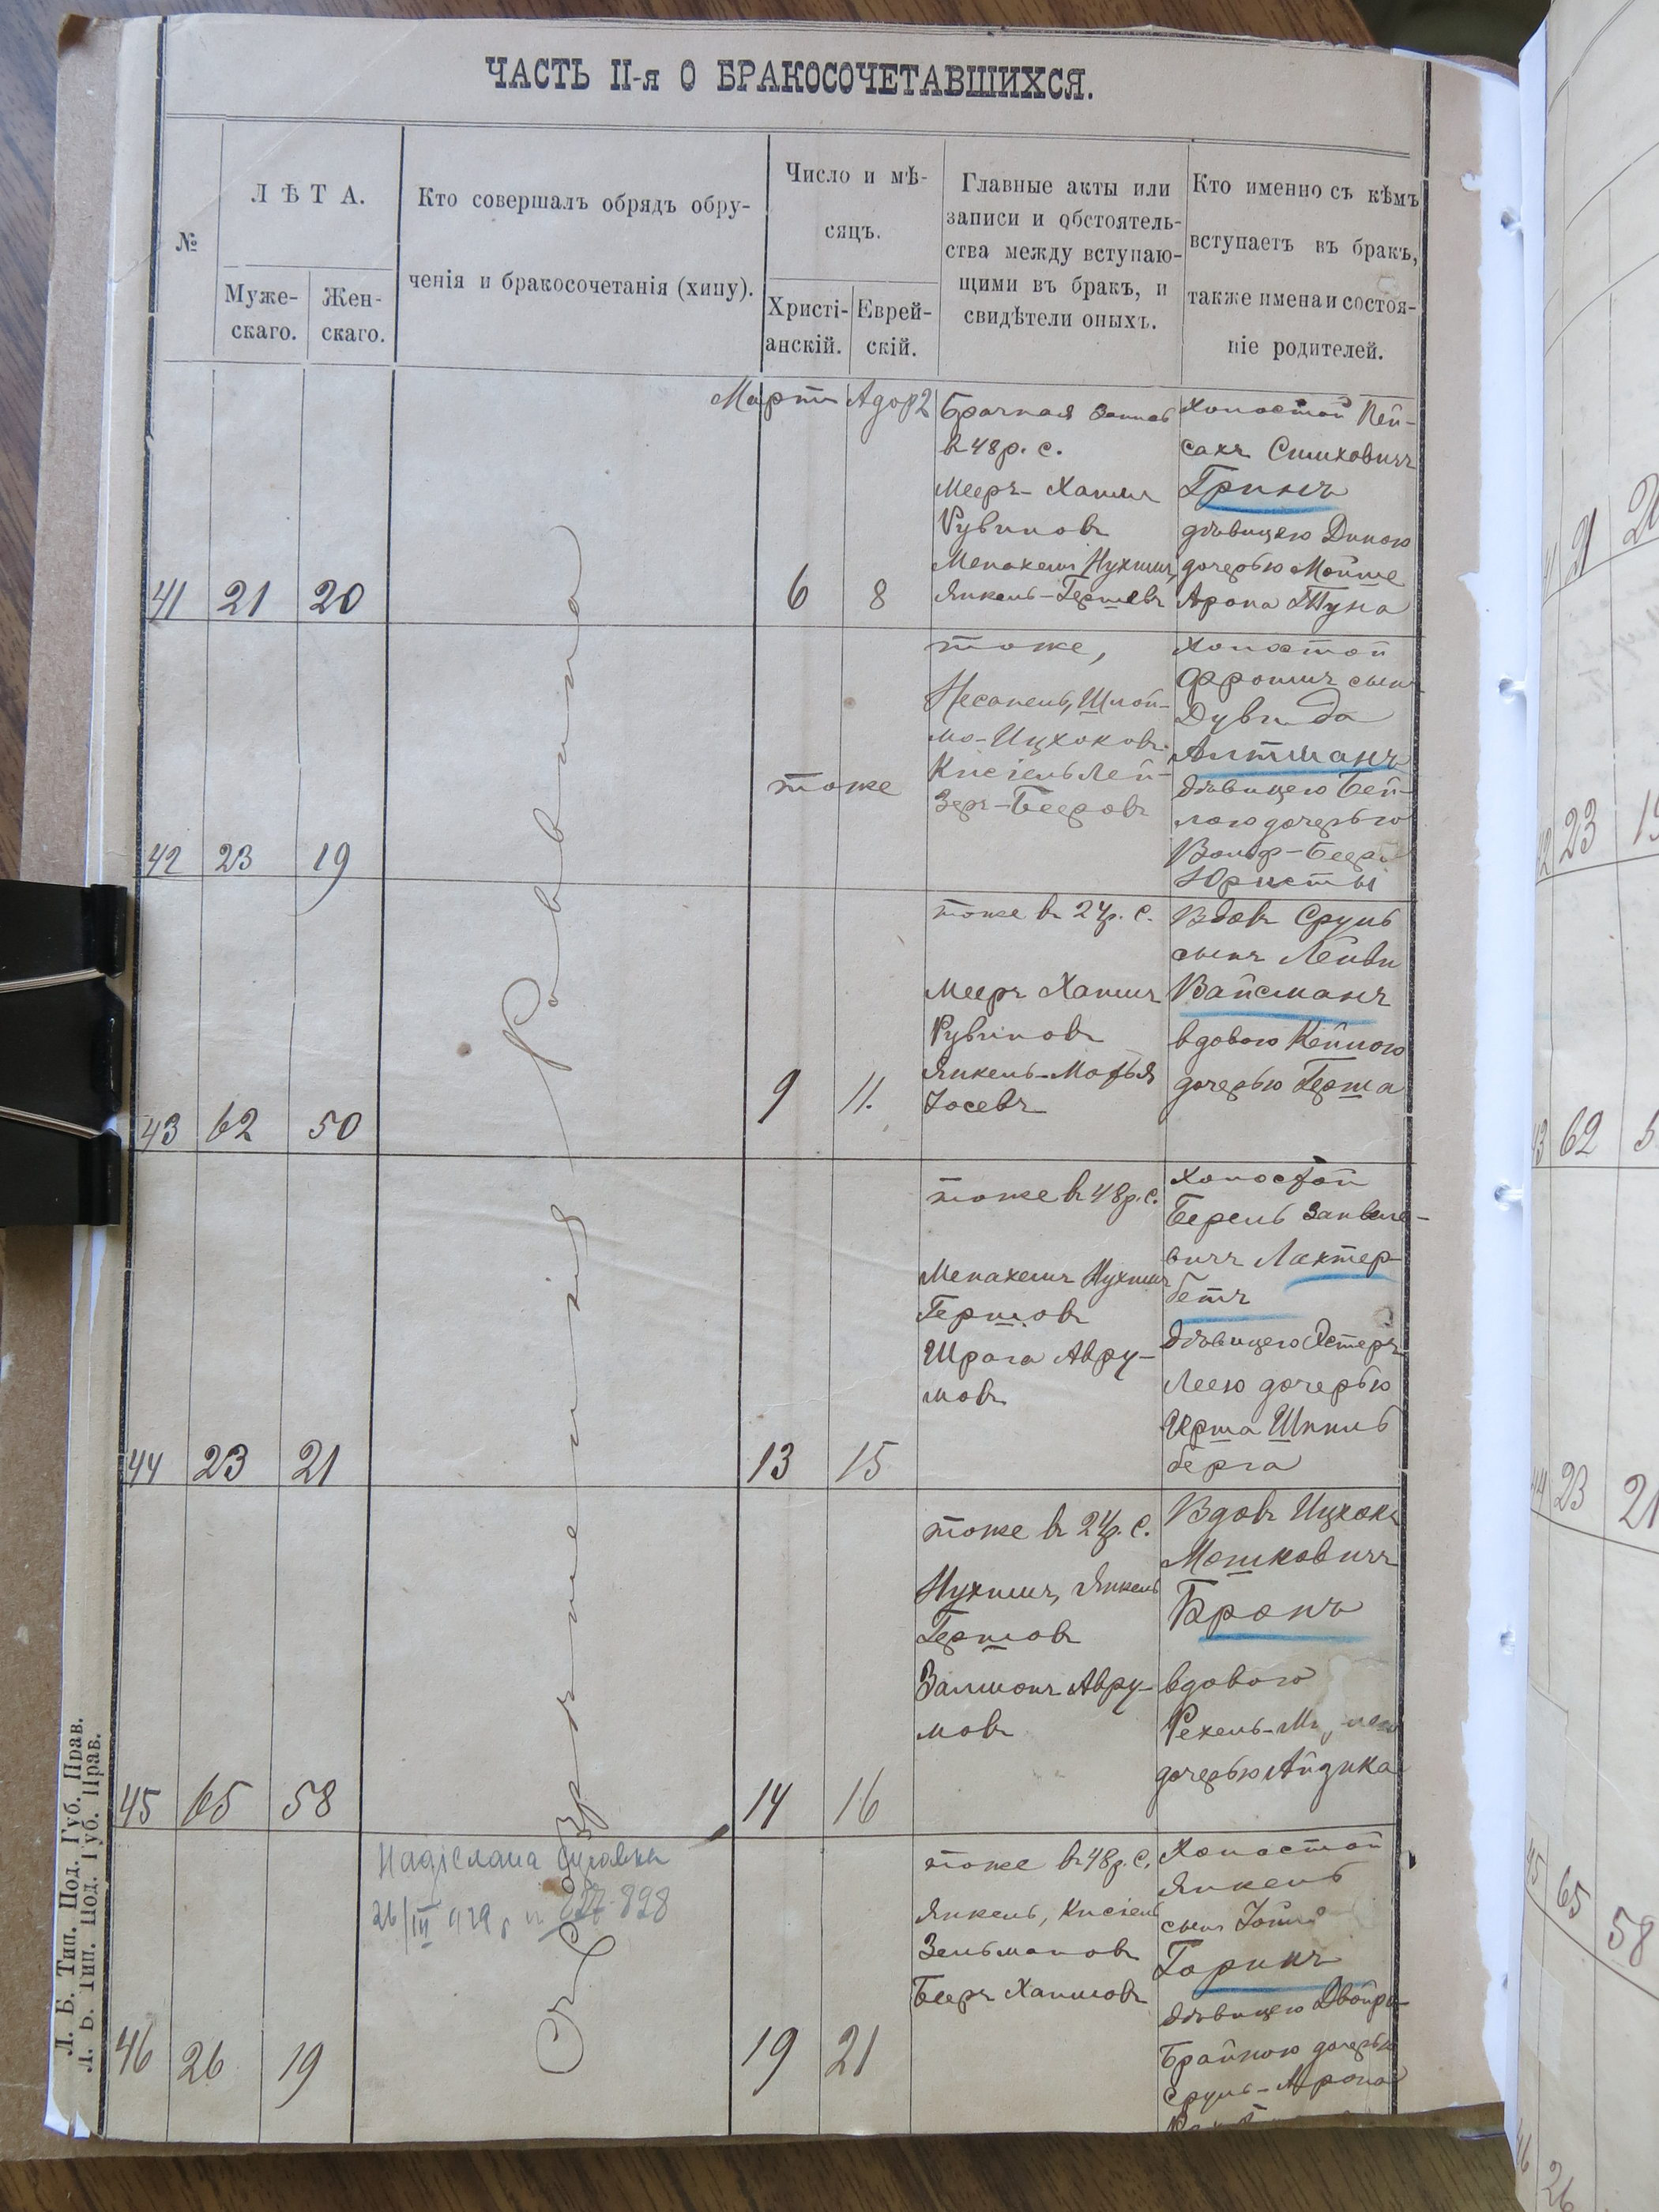 ЧАСТЬ II-я О БРАКОСОЧЕТАВШИХСЯ.
№
ЛѢТА.
Муже-
скаго.
Жен-
скаго.
Кто совершалъ обрядъ обру-
ченія и бракосочетанія (хипу).
Число и мѣ-
сяцъ.
Христі-
анскій.
Еврей-
скій.
Главные акты или
записи и обстоятель-
ства между вступаю-
щими въ бракъ, и
свидѣтели оныхъ.
Кто именно съ кѣмъ
вступаетъ въ бракъ,
также имена и состоя-
ніе родителей.
Съ разрешенія Раввина
41
21
20
Мартъ
Адор 2
6
8
Брачная запись
в 48 р. с.
Мееръ-Хаимъ
Рувиновъ
Менахемъ Нухимъ,
Янкель-Гершовъ
Холостой Пей-
сахъ Симховичъ
Гринъ
дѣвицею Диною
дочерью Мойше
Арона
42
23
19
тоже
тоже,
Несанель, Шлой-
мо-Ицхоковъ
Кисіель Лей-
зеръ-Бееровъ
Холостой
Фроимъ сынъ
Дувида
Алтманъ
дѣвицею Бей-
лою дочерью
Вольф-Беера
Юристы
43
62
50
9
11.
тоже в 24 р. с.
Мееръ Хаимъ
Рувиновъ
Янкель-Мотья
Іосевъ
Вдовъ Сруль
сынъ Лейви
Вайсманъ
вдовою Кейлою
дочерью Герша
44
23
21
13
15
тоже в 48 р. с.
Менахемъ Нухимъ
Гершовъ
Шрага Авру-
мовъ
Холостой
Берель Занвеле-
вичъ Лахтер-
бетъ
дѣвицею Эстеръ
Леею дочерью
Герша Шпиль
берга
45
65
58
14
16
тоже в 24 р. с.
Нухимъ, Янкель
Гершовъ
Залмонъ Авру-
мовъ
Вдовъ Ицхокъ
Мошковичъ
Бронъ
вдовою
Рехель-
дочерью Айзика
46
26
19
Надіслана справка
26/III 929 р. № 898
19
21
тоже в 48 р. с.
Янкель, Кисіель
Зельмановъ
Бееръ Хаимовъ
Холостой
Янкель
сынъ
Горинъ
дѣвицею Двойра-
Брайною дочерью
Сруль-Арона
Л. Б. Тип. Под. Губ. Прав.
Л. Б. Тип. Под. Губ. Прав.